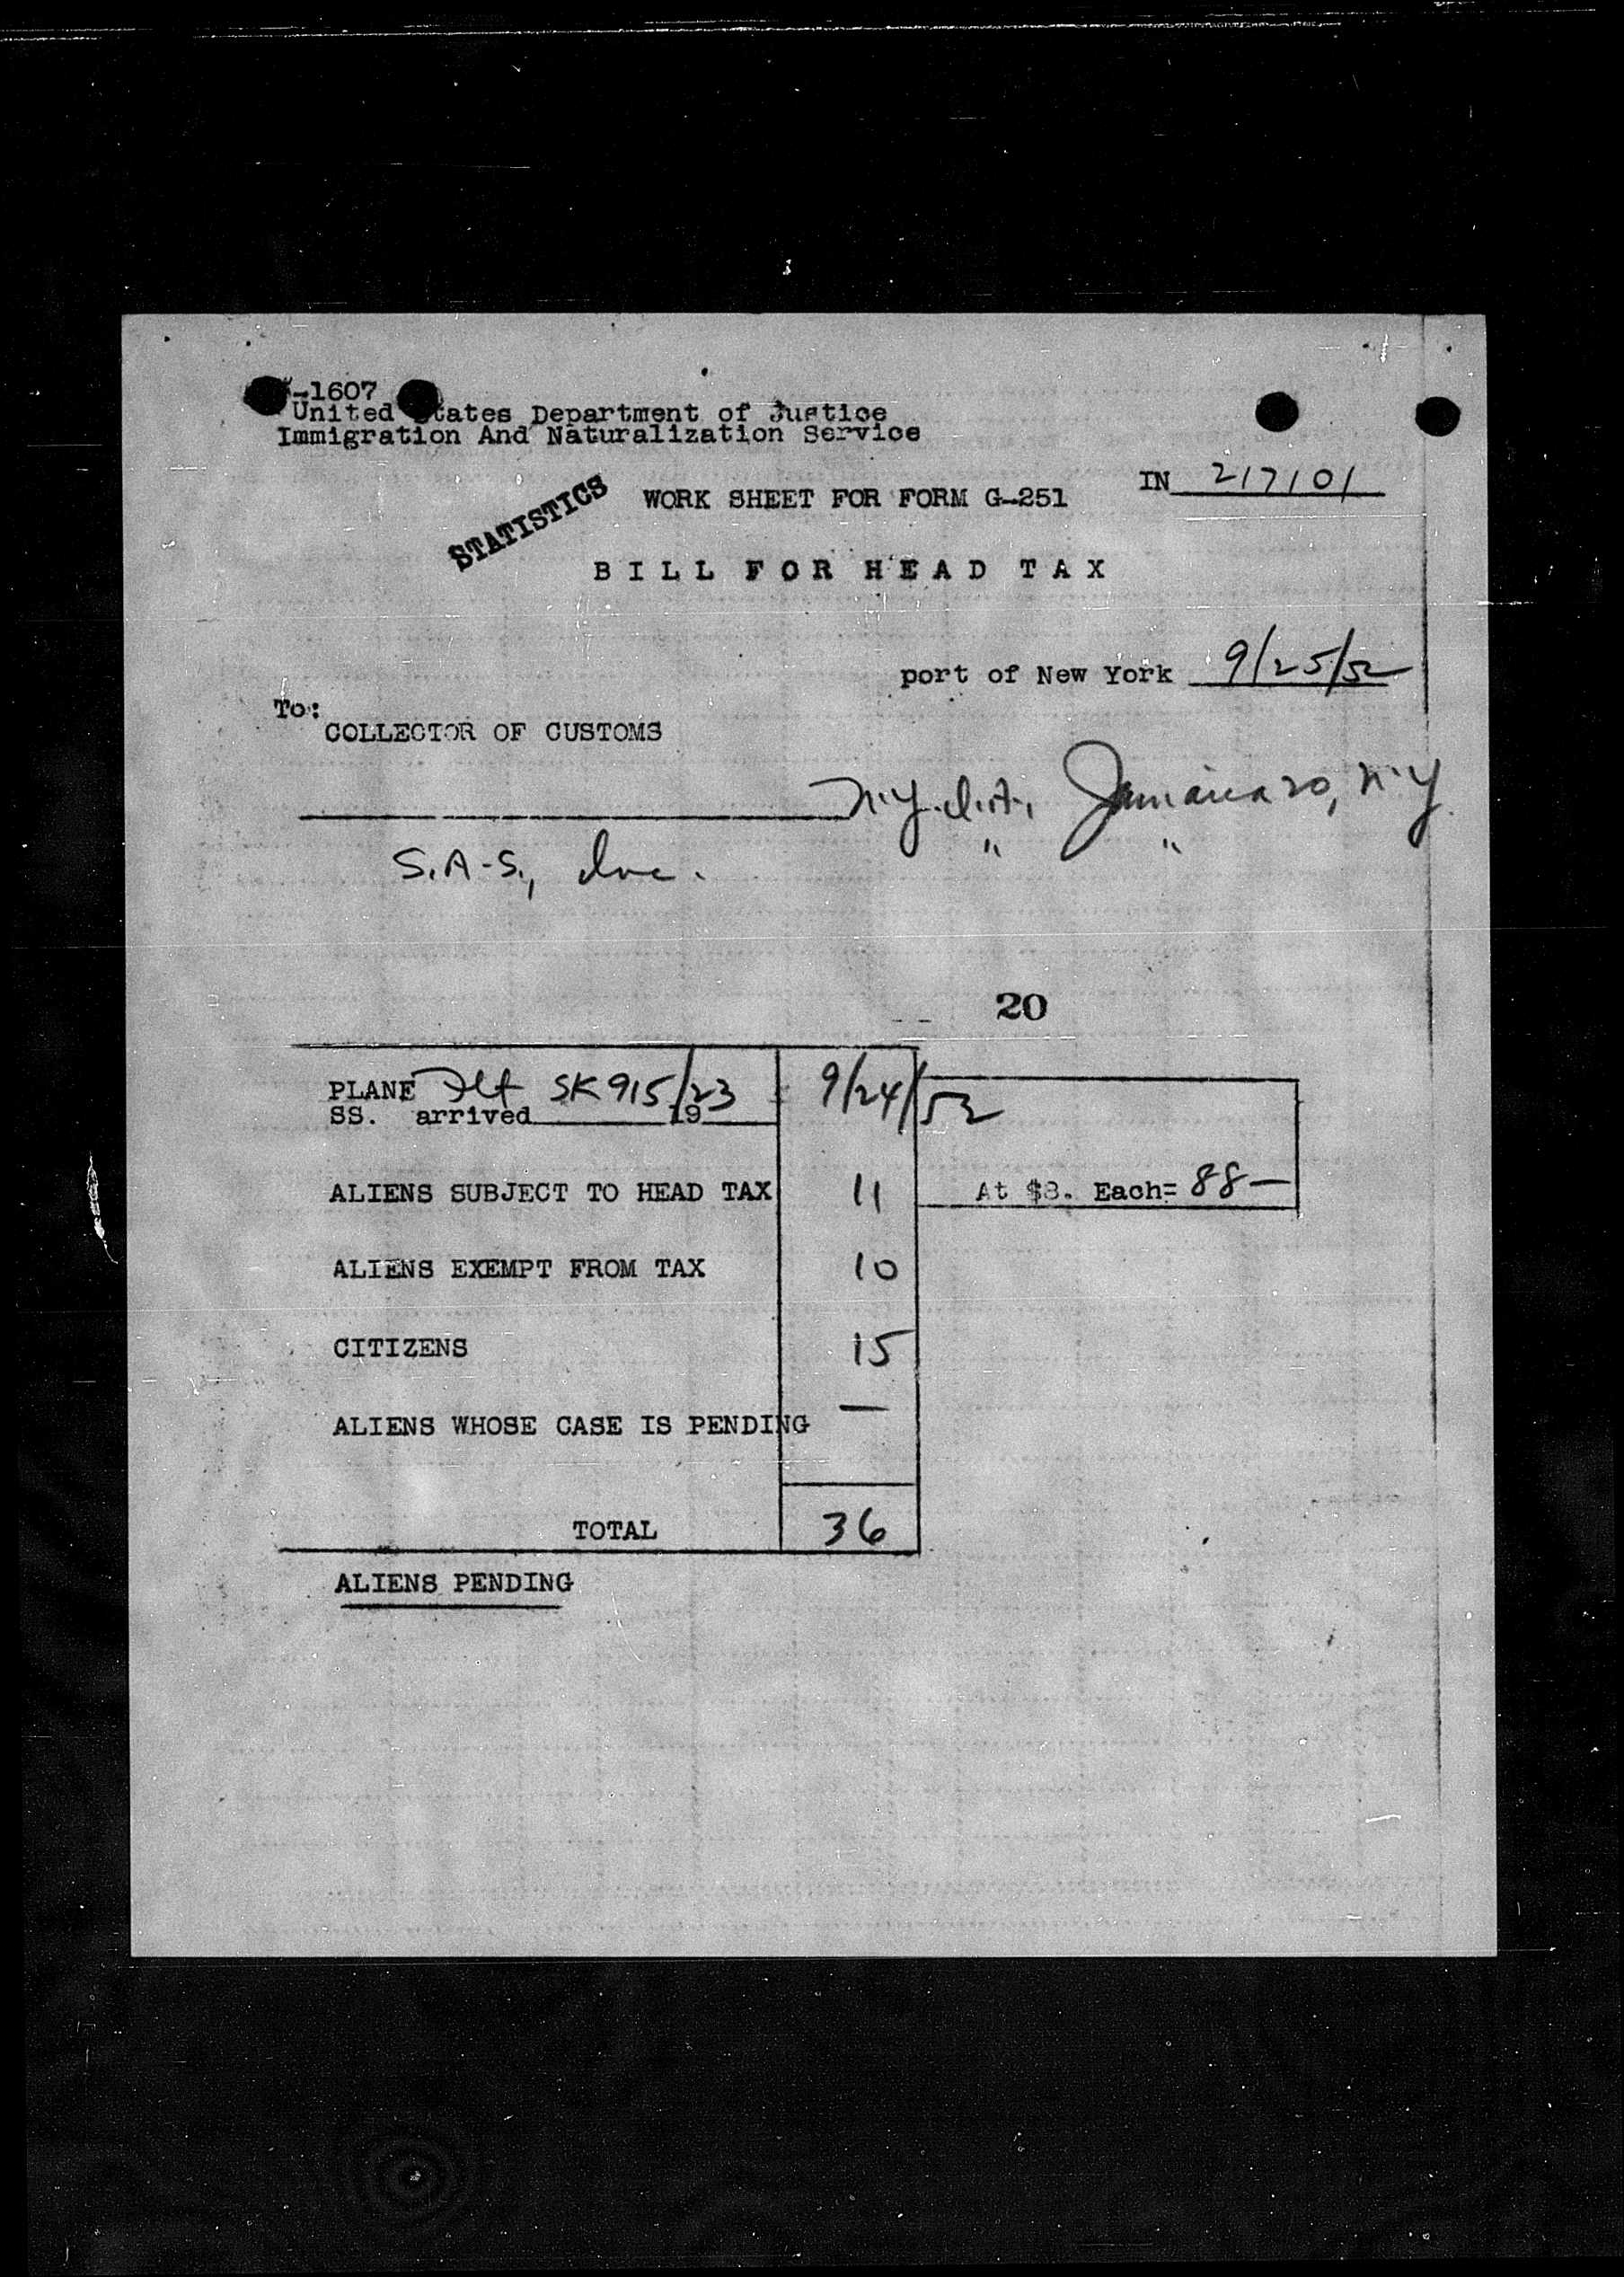 -1607
United States Department of Justice
Immigration And Naturalization Service
IN 217101
STATISTICS
WORK SHEET FOR FORM G-251
BILL FOR HEAD TAX
port of New York 9/25/52
To:
COLLECTOR OF CUSTOMS
N.Y.I.A., Jamaica 20, N.Y.
S.A.S., Inc. " "
20
PLANE Flt SK915/23 9/24/52
SS. arrived 19
ALIENS SUBJECT TO HEAD TAX 11 At $8. Each= 88—
ALIENS EXEMPT FROM TAX 10
CITIZENS 15
ALIENS WHOSE CASE IS PENDING —
TOTAL 36
ALIENS PENDING